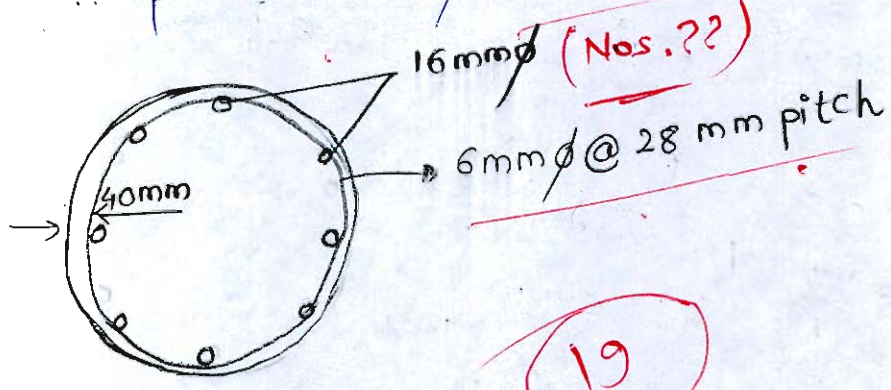 16mmϕ (Nos.??)
6mmϕ @ 28 mm pitch
40mm
19